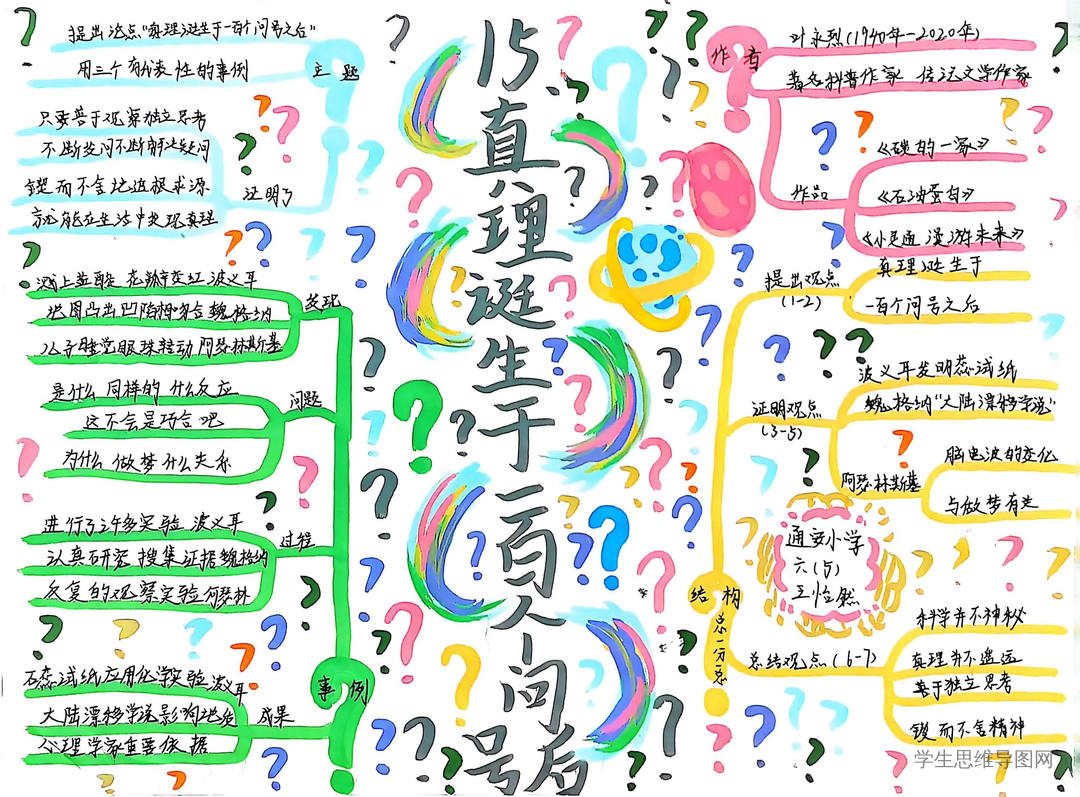 15真理诞生于一百个问号后
主题
提出论点“真理诞生于一百个问号之后”
用三个有代表性的事例
证明了
只要善于观察独立思考
不断发问不断解决疑问
锲而不舍地追根求源
就能在生活中发现真理
事例
发现
溅上盐酸 花瓣变红 波义耳
地图凸出凹陷相吻合 魏格纳
儿子睡觉眼珠转动 阿瑟林斯基
问题
是什么 同样的 什么反应
这不会是巧合吧
为什么 做梦 什么关系
过程
进行了许多实验 波义耳
认真研究 搜集证据 魏格纳
反复的观察实验 阿瑟林
成果
石蕊试纸 应用化学实验 波义耳
大陆漂移学说 影响地质
心理学家重要依据
作者
叶永烈(1940年-2020年)
著名科普作家 传记文学作家
作品
《碳的一家》
《石油蛋白》
《小灵通漫游未来》
结构
总一分一总
提出观点
(1-2)
真理诞生于
一百个问号之后
证明观点
(3-5)
波义耳发明蕊试纸
魏格纳“大陆漂移学说”
阿瑟·林斯基
脑电波的变化
与做梦有关
总结观点(6-7)
科学并不神秘
真理并不遥远
善于独立思考
锲而不舍精神
通安小学
六(5)
王怡然
学生思维导图网